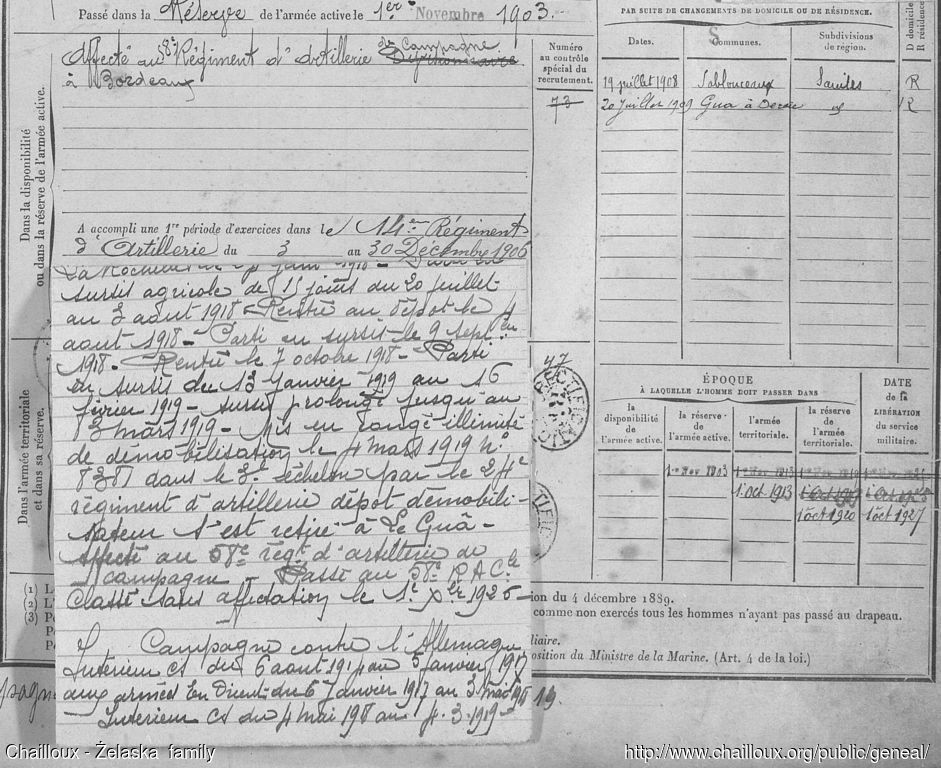 Passé dans la Réserve de l'armée active le 1er Novembre 1903.
Affecté au 8e Régiment d'Artillerie de Campagne
à Bordeaux
Dans la disponibilité
ou dans la réserve de l'armée active.
Numéro
au contrôle
spécial du
recrutement.
73
A accompli une 1re période d'exercices dans le 14e Régiment
d'Artillerie du 3 au 30 Décembre 1906
PAR SUITE DE CHANGEMENTS DE DOMICILE OU DE RÉSIDENCE.
Dates. Communes. Subdivisions
de région.
D domicile
R résidence
S
19 juillet 1908 Sablonceaux Saintes R
20 Juillet 1909 Gua à R
Dans l'armée territoriale
et dans sa réserve.
La Rochelle 1918
sursis agricole de 15 jours du 20 juillet
au 3 août 1918 - Rentré au dépôt le 4
août 1918 - Parti en sursis le 9 sept.
1918 - Rentré le 7 octobre 1918 - Parti
en sursis du 13 janvier 1919 au 16
février 1919 - sursis prolongé jusqu'au
3 mars 1919 - Mis en congé illimité
de démobilisation le 4 mars 1919 No
dans le 3e échelon par le 24e
régiment d'artillerie dépôt démobili-
sateur S'est retiré à Le Guâ -
Affecté au 58e régt d'artillerie de
campagne - Passé au 58e R.A.C.
Classé sans affectation le 1e Xbre 1926 -
Campagne contre l'Allemagne
Intérieur CS du 6 août 1914 au 5 janvier 1917
aux armées En Orient du 6 janvier 1917 au 3 mai 1918
Intérieur CS du 4 mai 1918 au 4.3.1919 -
47
RECTIFICATION
ÉPOQUE
À LAQUELLE L'HOMME DOIT PASSER DANS
la
disponibilité
de
l'armée active.
la réserve
de
l'armée active.
l'armée
territoriale.
la réserve
de l'armée
territoriale.
DATE
de la
LIBÉRATION
du service
militaire.
1er Nov 1903 1er Nov 1913
1 Oct 1913
1 oct 1920 1 oct 1927
(1)
(2)
(3)
du 4 décembre 1889.
comme non exercés tous les hommes n'ayant pas passé au drapeau.
du Ministre de la Marine. (Art. 4 de la loi.)
19.
Chailloux - Żelaska family
http://www.chailloux.org/public/geneal/